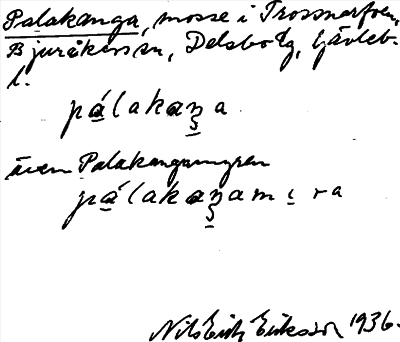 Palakanga, mosse i Trossnarfoen,
Bjuråkers sn, Delsbo tg, Gävleb.
l.
pálakaŋa
även Palakangamyren
pálakaŋam ι ra
Nils Erik Eriksson 1936.